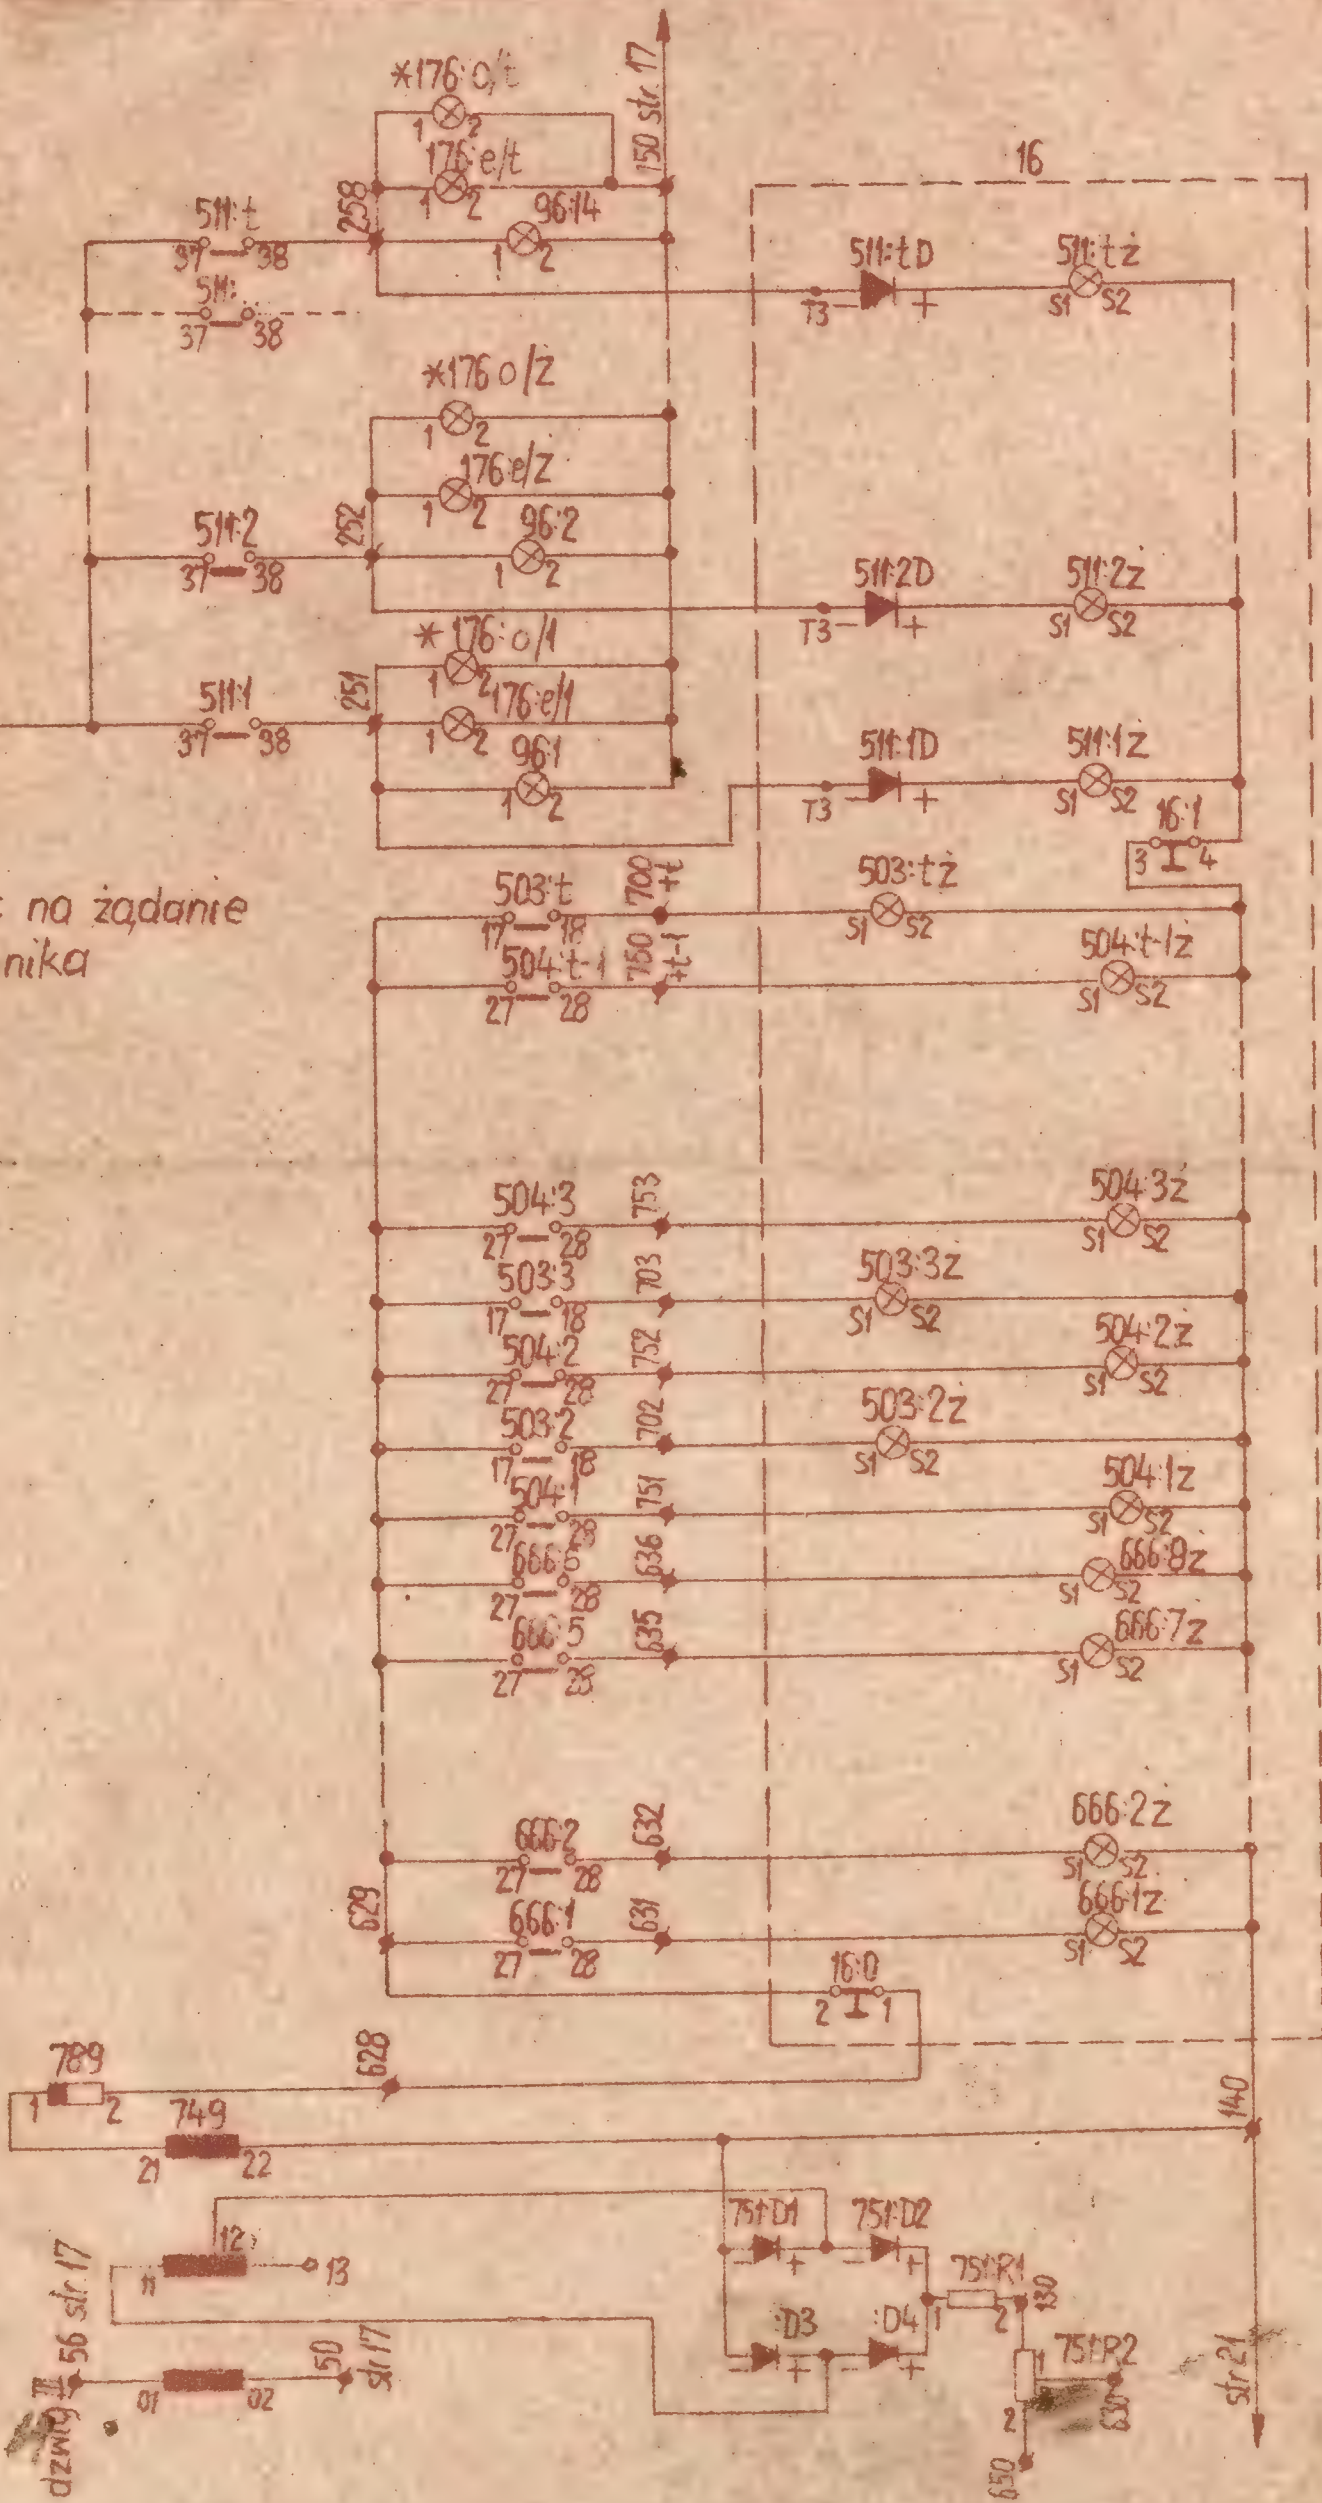 *176:o/t
1 2
176:e/t
1 2
258
150 str. 17
16
511:t
37 38
96:14
1 2
511:tD
T3 - +
511:tż
S1 S2
511:...
37 38
*176 o/ż
1 2
176:e/ż
1 2
252
511:2
37 38
96:2
1 2
511:2D
T3 - +
511:2ż
S1 S2
*176:o/1
1 2
251
176:e/1
1 2
511:1
37 38
96:1
1 2
511:1D
T3 - +
511:1ż
S1 S2
16:1
3 4
: na żądanie
nika
503:t
17 18
700
+t
503:tż
S1 S2
504:t-1
27 28
750
+t-1
504:t-1ż
S1 S2
504:3
27 28
753
504:3ż
S1 S2
503:3
17 18
703
503:3ż
S1 S2
504:2
27 28
752
504:2ż
S1 S2
503:2
17 18
702
503:2ż
S1 S2
504:1
27 28
751
504:1ż
S1 S2
666:6
27 28
636
666:8ż
S1 S2
666:5
27 28
635
666:7ż
S1 S2
666:2
27 28
632
666:2ż
S1 S2
629
666:1
27 28
631
666:1ż
S1 S2
16:0
2 1
628
789
1 2
749
21 22
140
12
11 13
751:D1
- +
751:D2
- +
751:R1
1 2
130
:D3
- +
:D4
- +
751:R2
1
2
630
650
dźwig III
56 str. 17
01 02
50
str 17
str 21